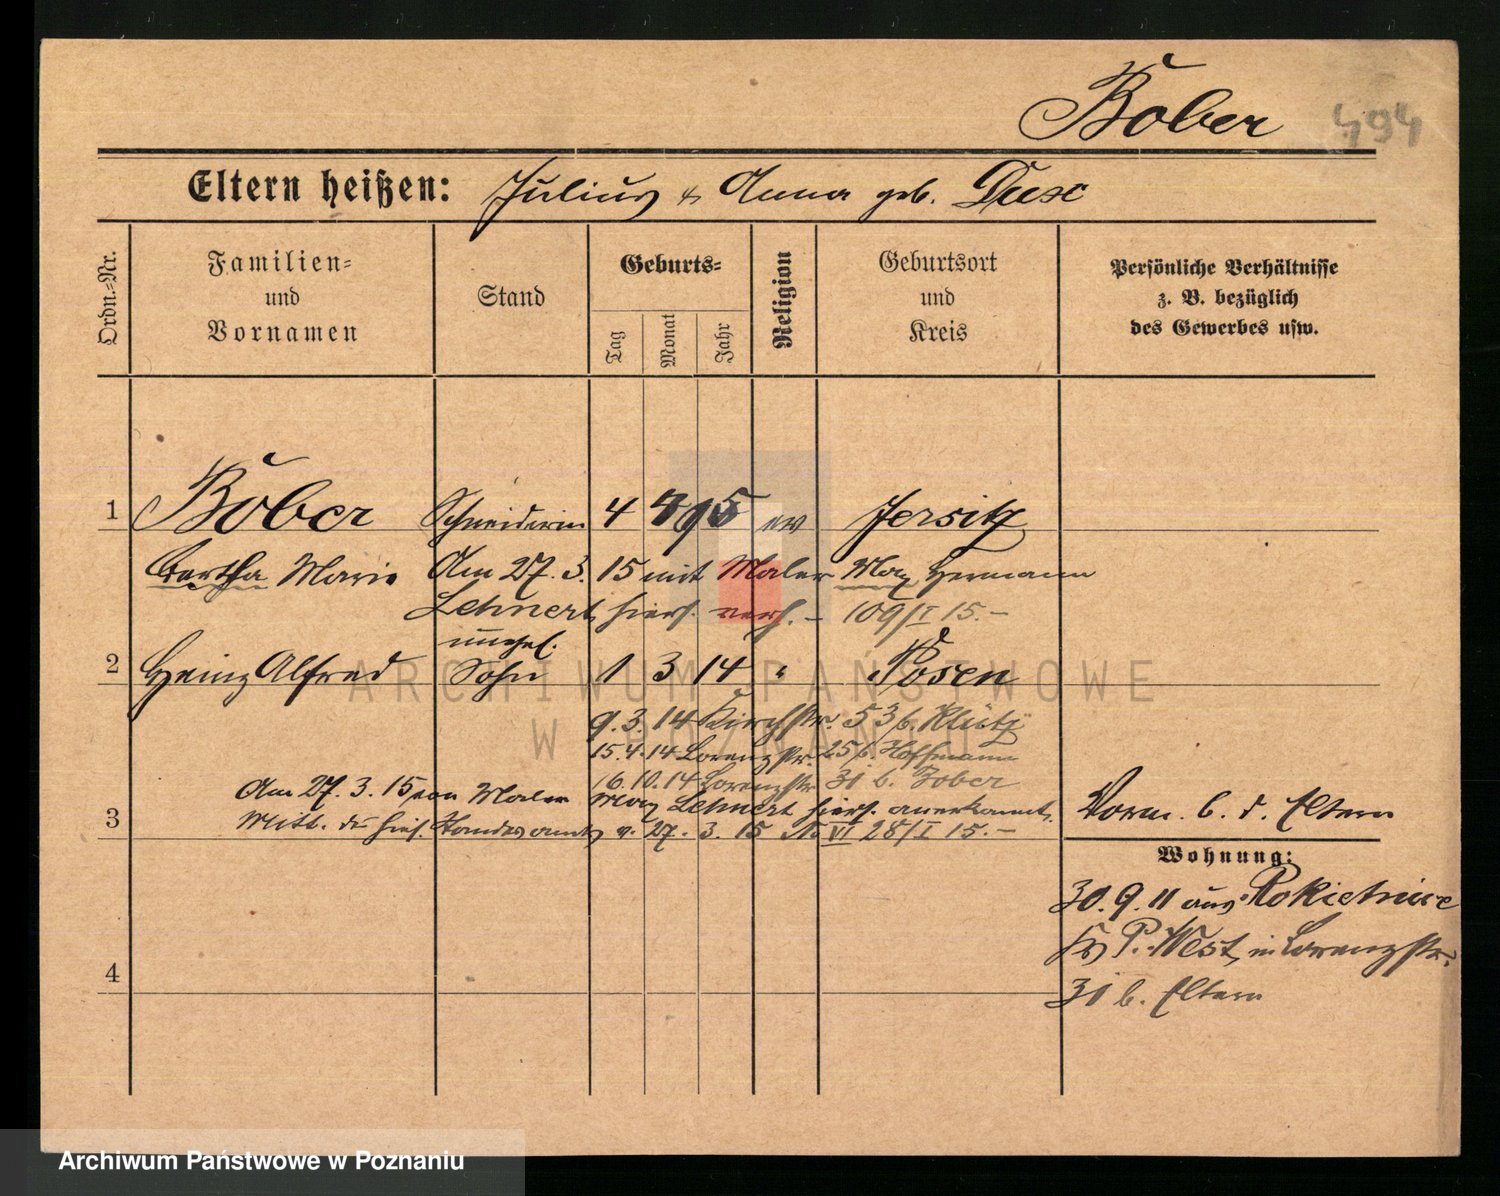 Bober 494
Eltern heißen: Julius & Anna geb.
Ordn.-Nr.
Familien- und Vornamen
Stand
Geburts-
Tag Monat Jahr
Religion
Geburtsort und Kreis
Persönliche Verhältnisse
z. B. bezüglich
des Gewerbes usw.
1 Bober Schneiderin 4 4 95 ev Jersitz
Bertha Marie Am 27. 3. 15 mit Maler Max Hermann
Lehnert hies. verh. – 109/I 15. –
unehel.
2 Heinz Alfred Sohn 1 3 14 " Posen
9. 3. 14 Kirchstr. 53 b. Klütz
15. 4. 14 Lorenzstr. 25 b. Hoffmann
16. 10. 14 Lorenzstr 31 b. Bober
Am 27. 3. 15 von Maler Max Lehnert hies. anerkannt.
3 Mitt. d. hies. Standesamts v. 27. 3. 15 No VI 28/I 15. –
Vorm. b. d. Eltern
Wohnung:
30. 9. 11 aus Rokietnice
Kr P. West, in Lorenzstr.
31 b. Eltern
4
ARCHIWUM PAŃSTWOWE
W POZNANIU
Archiwum Państwowe w Poznaniu